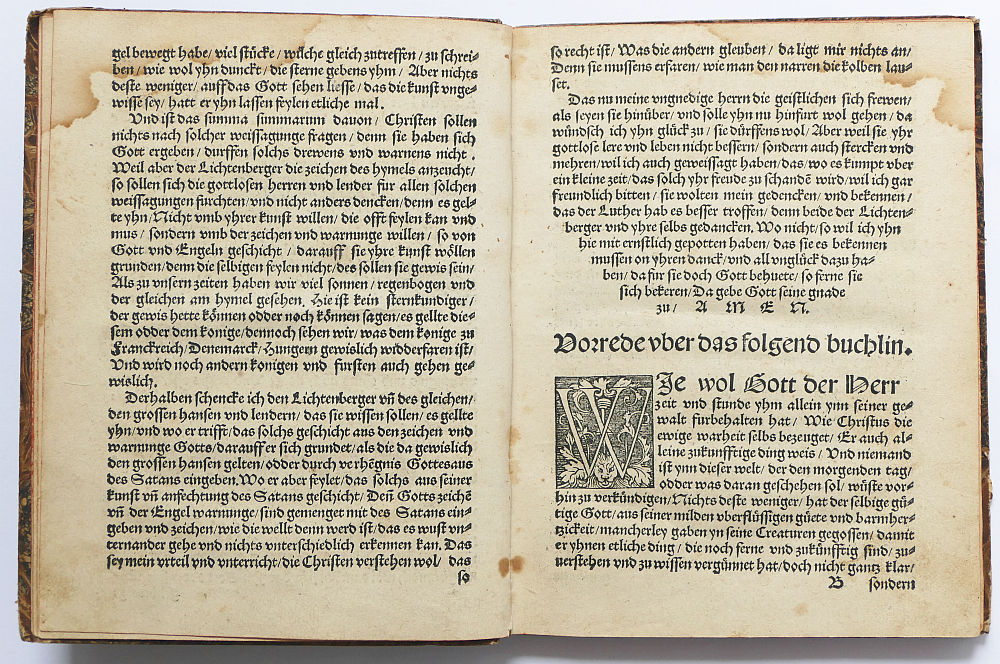 gel bewegt habe/ viel stücke/ wilche gleich zutreffen/ zu schrei-
ben/ wie wol yhn dunckt/ die sterne gebens yhm/ Aber nichts
deste weniger/ auff das Gott sehen liesse/ das die kunst vnge-
wisse sey/ hatt er yhn lassen feylen etliche mal.
Vnd ist das summa summarum dauon/ Christen sollen
nichts nach solcher weissagunge fragen/ denn sie haben sich
Gott ergeben/ durffen solchs drewens vnd warnens nicht.
Weil aber der Lichtenberger die zeichen des hymels anzeucht/
so sollen sich die gottlosen herren vnd lender fur allen solchen
weissagungen furchten/ vnd nicht anders dencken/ denn es gel-
te yhn/ Nicht vmb yhrer kunst willen/ die offt feylen kan vnd
mus/ sondern vmb der zeichen vnd warnunge willen/ so von
Gott vnd Engeln geschicht/ darauff sie yhre kunst wöllen
grunden/ denn die selbigen feylen nicht/ des sollen sie gewis sein/
Als zu vnsern zeiten haben wir viel sonnen/ regenbogen vnd
der gleichen am hymel gesehen. Hie ist kein sternkundiger/
der gewis hette können odder noch können sagen/ es gellte die-
sem odder dem konige/ dennoch sehen wir/ was dem konige zu
Franckreich/ Denemarck/ Hungern gewislich widderfaren ist/
Vnd wird noch andern konigen vnd fursten auch gehen ge-
wislich.
Derhalben schencke ich den Lichtenberger vn̄ des gleichen/
den grossen hansen vnd lendern/ das sie wissen sollen/ es gellte
yhn/ vnd wo er trifft/ das solchs geschicht aus den zeichen vnd
warnunge Gotts/ darauff er sich grundet/ als die da gewislich
den grossen hansen gelten/ odder durch verhēgnis Gottes aus
des Satans eingeben. Wo er aber feylet/ das solchs aus seiner
kunst vn̄ anfechtung des Satans geschicht/ Deñ Gotts zeichē
vn̄ der Engel warnunge/ sind gemenget mit des Satans ein-
geben vnd zeichen/ wie die wellt denn werd ist/ das es wust vn-
ternander gehe vnd nichts vnterschiedlich erkennen kan. Das
sey mein vrteil vnd vnterricht/ die Christen verstehen wol/ das
so
so recht ist/ Was die andern gleuben/ da ligt mir nichts an/
Denn sie mussens erfaren/ wie man den narren die kolben lau-
set.
Das nu meine vngnedige herrn die geistlichen sich frewen/
als seyen sie hinüber/ vnd solle yhn nu hinfurt wol gehen/ da
wündsch ich yhn glück zu/ sie dürffens wol/ Aber weil sie yhr
gottlose lere vnd leben nicht bessern/ sondern auch stercken vnd
mehren/ wil ich auch geweissagt haben/ das/ wo es kumpt vber
ein kleine zeit/ das solch yhr freude zu schandē wird/ wil ich gar
freundlich bitten/ sie wolten mein gedencken/ vnd bekennen/
das der Luther hab es besser troffen/ denn beide der Lichten-
berger vnd yhre selbs gedancken. Wo nicht/ so wil ich yhn
hie mit ernstlich gepotten haben/ das sie es bekennen
mussen on yhren danck/ vnd all vnglück dazu ha-
ben/ da fur sie doch Gott behuete/ so ferne sie
sich bekeren/ Da gebe Gott seine gnade
zu/ A M E N.
Vorrede vber das folgend buchlin.
WJe wol Gott der Herr
zeit vnd stunde yhm allein ynn seiner ge-
walt furbehalten hat/ Wie Christus die
ewige warheit selbs bezeuget/ Er auch al-
leine zukunfftige ding weis/ Vnd niemand
ist ynn dieser welt/ der den morgenden tag/
odder was daran geschehen sol/ wüste vor-
hin zu verkündigen/ Nichts deste weniger/ hat der selbige gü-
tige Gott/ aus seiner milden vberflüssigen güete vnd barmher-
tzickeit/ mancherley gaben yn seine Creaturen gegossen/ damit
er yhnen etliche ding/ die noch ferne vnd zukünfftig sind/ zu-
verstehen vnd zu wissen vergünnet hat/ doch nicht gantz klar/
B sondern